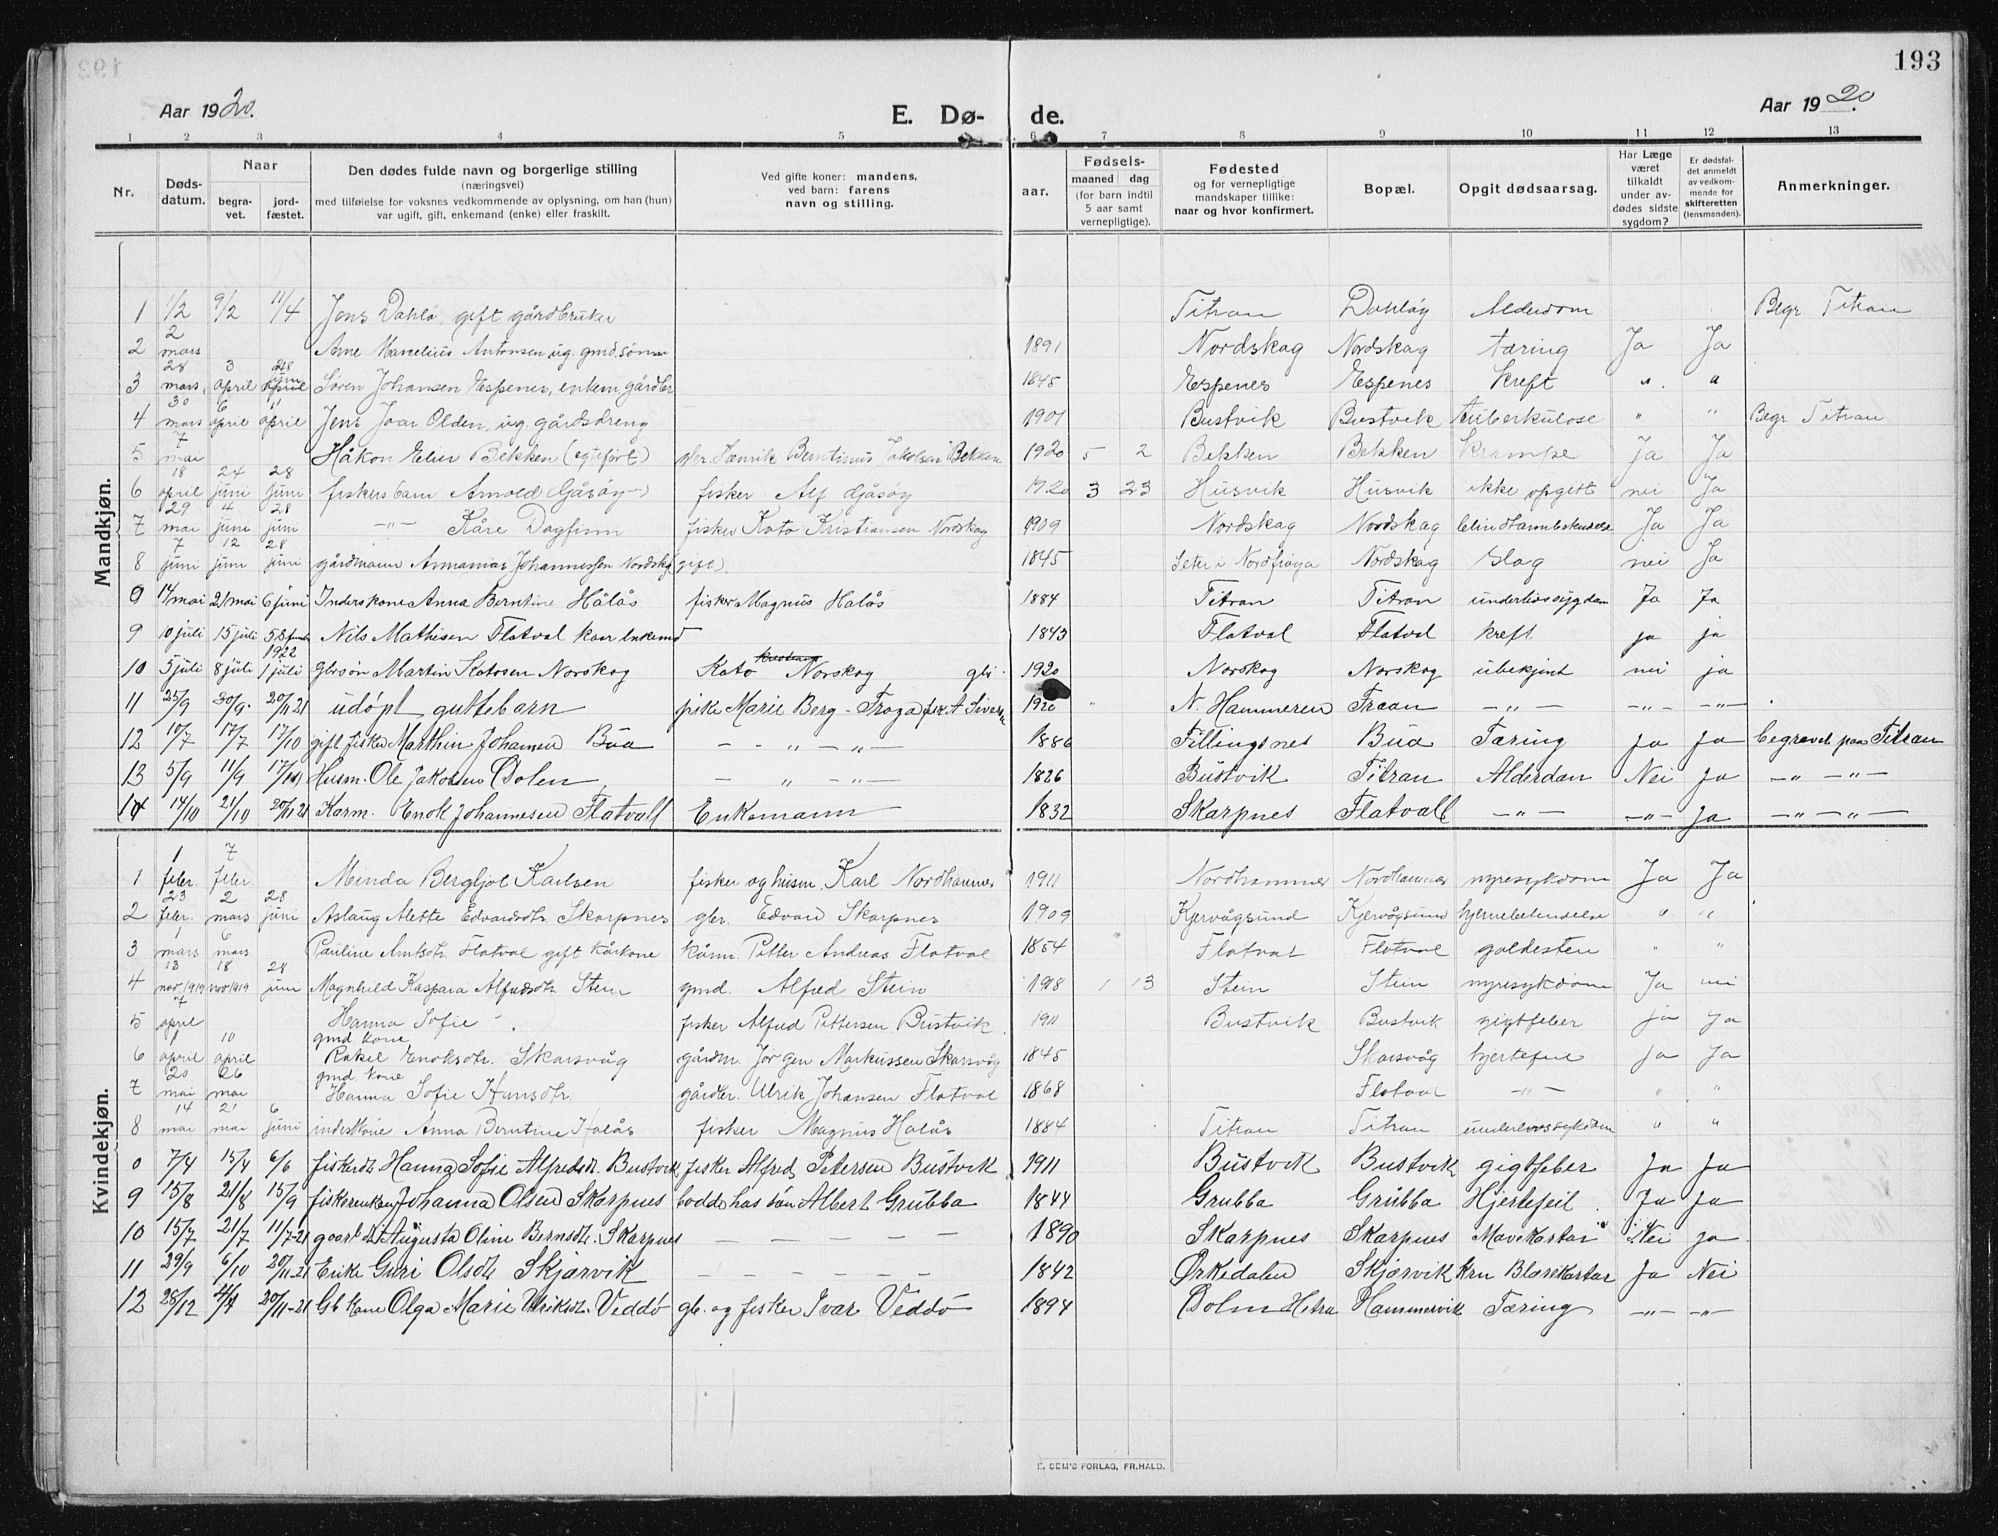 193
Aar 1920. E. Dø- de. Aar 1920.
1 2 3 4 5 6 7 8 9 10 11 12 13
Nr. Døds-datum. Naar begra-vet. jord-fæstet. Den dødes fulde navn og borgerlige stilling (næringsvei) med tilføielse for voksnes vedkommende av oplysning, om han (hun) var ugift, gift, enkemand (enke) eller fraskilt. Ved gifte koner: mandens, ved barn: farens navn og stilling. aar. Fødsels- maaned dag (for barn indtil 5 aar samt vernepligtige). Fødested og for vernepligtige mandskaper tillike: naar og hvor konfirmert. Bopæl. Opgit dødsaarsag. Har Læge været tilkaldt under av-dødes sidste sygdom? Er dødsfal-det anmeldt av vedkom-mende for skifteretten (lensmanden). Anmerkninger.
Mandkjøn.
1 1/2 9/2 11/4 Jens Dahlø, gift gårdbruker Titran Dahløy Alderdom Begr. Titran
2 2 mars Arne Marcelius Antonsen ug. gmd.sønn 1891 Nordskag Nordskag tæring Ja Ja
3 28 mars, 3 april Søren Johansen Espenes, enkem, gårdbr 1845 Espenes Espenes kreft " "
4 30 mars 6 april 11 april Jens Joar Olden, ug. gårdsdreng 1901 Bustvik Bustvik tuberkulose " " Begr. Titran
5 7 mai Håkon Elier Bekken gbr. Henrik Berntinus Jakobsen Bekken 1920 5 2 Bekken Bekken Krampe Ja Ja
6 18 april 24 juni 28 juni fiskers barn Arnold (Gåsøy) fisker Alf Gåsøy 1920 3 23 Husvik Husvik ikke opgitt nei Ja
7 29 mai 4 juni 28 juni -"- Kåre Dagfinn fisker Kato Kristiansen Nordskag 1909 Nordskag Nordskag blindtarmbetendelse Ja Ja
8 7 juni 12 juni 28 juni gårdmann Annanias Johannessen Nordskag (gift). 1845 Seter i Nordfrøya Nordskag slag nei Ja
9 14 mai 21 mai 6 juni Inderskone Anna Berntine Hålås fisker Magnus Halås 1884 Titran Titran underlivssygdom Ja Ja
9 10 juli 15 juli Nils Mathisen Flatval kaar enkemd 1843 Flatval Flatval kreft ja ja
10 5 juli 8 juli 1922 1 juli gbrsøn Martin Katosen Norskag Kato Norskag gbr. 1920 Norskag Norskag ubekjent nei ja
11 25/9 30/9. 20/11 21 udøpt guttebarn pike Marie Berg - Frøya 1920 " N. Hammeren Fraan -"- -"- -"-
12 10/7 17/7 17/10 gift fisker Marthin Johansen Bua - - " - " - 1886 Fillingsnes Bua Tæring ja Ja begravet paa Titran
13 5/9 11/9 17/10 Husm. Ole Jakobsen Dolen - " - " - 1826 Bustvik Titran Alderdom Nei Ja -"- -"-
14 14/10 21/10 20/11 21 Karm. Enok Johannesen Flatvall Enkemann 1832 Skarpnes Flatvall -"- -"- Ja -"- -"-
Kvindekjøn.
1 1 febr. 7 febr. Minda Bergljot Karlsen fisker og husm. Karl Nordhammer 1911 Nordhammer Nordhammer nyresykdom Ja Ja
2 23 febr. 2 mars 28 juni Aslaug Alette Edvardsdtr. Skarpnes gbr. Edvard Skarpnes 1909 Kjervågsund Kjervågsund hjernebetendelse " "
3 1 mars 6 mars Pauline Arntsdtr. Flatval gift kårkone kårm. Petter Andreas Flatval 1854 Flatval Flatval galdesten " "
4 13 nov. 1919 18 nov 1919 28 juni Magnhild Kaspara Alfredsdtr Stein gmd. Alfred Stein 1918 1 13 Stein Stein nyresykdom Ja nei
5 7 april Hanna Sofie fisker Alfred Pettersen Bustvik 1911 Bustvik Bustvik gigtfeber ja ja
6 april 10 april gmd kone Rakel Enoksdtr. Skarsvåg gårdm. Jørgen Markussen Skarsvåg 1845 Skarsvåg hjertefeil ja Ja
7 20 mai 26 mai gmd. kone Hanna Sofie Hansdtr. gårdbr. Ulrik Johansen Flatval 1868 Flatval -"- " "
8 14 mai 21 mai 6 juni inderskone Anna Berntine Halås fisker Magnus Halås 1884 Titran Titran underlivssykdom " "
0 7/4 15/4 6/6 fiskerdt. Hanna Sofie Alfredsdt. Bustvik fisker Alfred Petersen Bustvik 1911 Bustvik Bustvik gigtfeber Ja Ja
9 15/8 21/8 15/9 fiskerenken Johanna Olsen Skarpnes bodde hos søn Albert Grubba 1844 Grubba Grubba Hjertefeil Ja Ja
10 15/7 21/7 11/7-21 gaard. dt. Augusta Oline Bernsdt. Skarpnes - - - - - 1890 Skarpnes Skarpnes Mavekatar Nei ja
11 29/9 6/10 20/11-21 Enke Guri Olsdt Skjærvik - - - - - 1842 Ørkedalen Skjærvik kru Blærekatar Ja Nei
12 28/12 4/4 20/11-21 Gb kone Olga Marie Ulriksdt. Veddø gb. og fisker Ivar Veddø 1894 Dolm Hitra Hammervik Tæring -"- -"-
E. SEM'S FORLAG, FR.HALD.